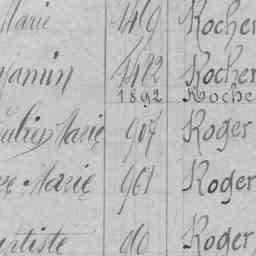 Marie 1469 Rocher
jamin 1472 Rocher
1892 Roche
Julien Marie 907 Roger
Marie 961 Roger
aptiste do Roger